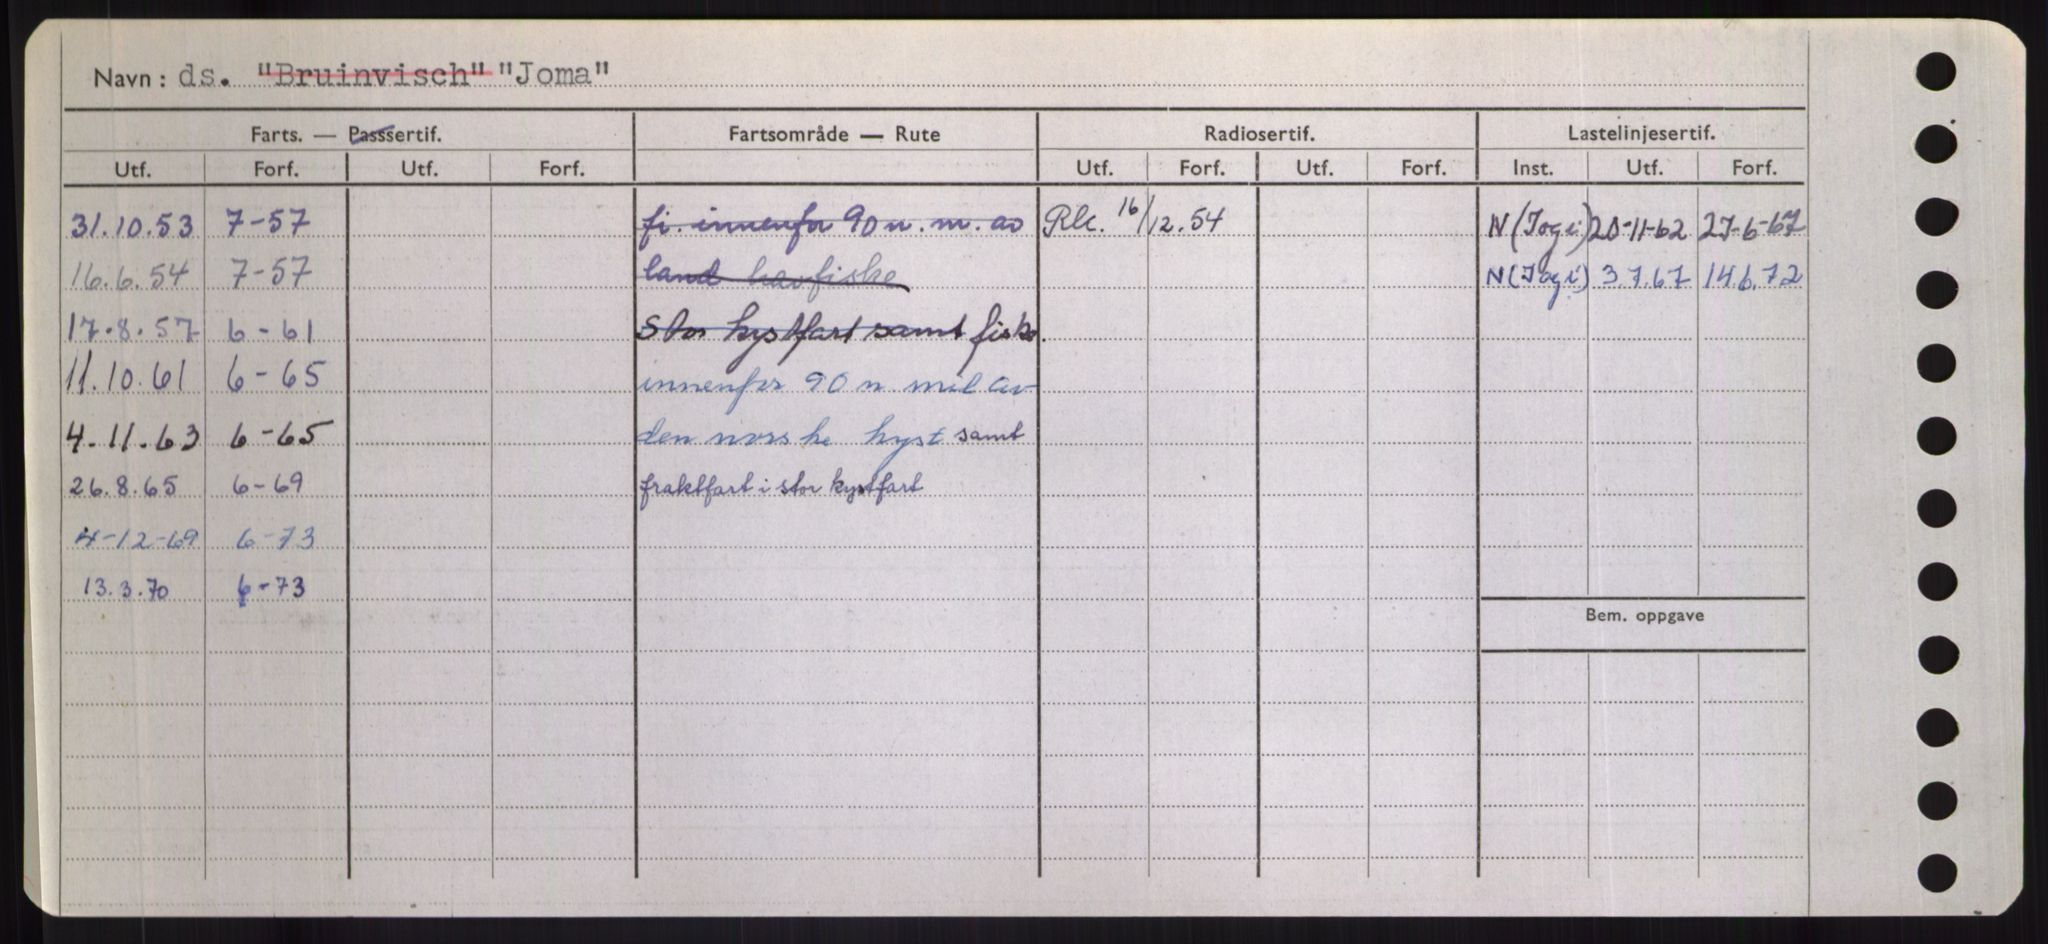 Navn : ds. "Bruinvisch" "Joma"
Farts. — Passsertif. Fartsområde — Rute Radiosertif. Lastelinjesertif.
Utf. Forf. Utf. Forf. Utf. Forf. Utf. Forf. Inst. Utf. Forf.
31.10.53 7-57 fi. innenfor 90 n. m. av Rk. 16/12.54 N (Jogi) 20-11-62 27-6-67
16.6.54 7-57 land havfiske N (Jogi) 3.7.67 14.6.72
17.8.57 6-61 Stor kystfart samt fiske
11.10.61 6-65 innenfor 90 n mil av
4.11.63 6-65 den norske kyst samt
26.8.65 6-69 fraktfart i stor kystfart
4-12-69 6-73
13.3.70 6-73
Bem. oppgave